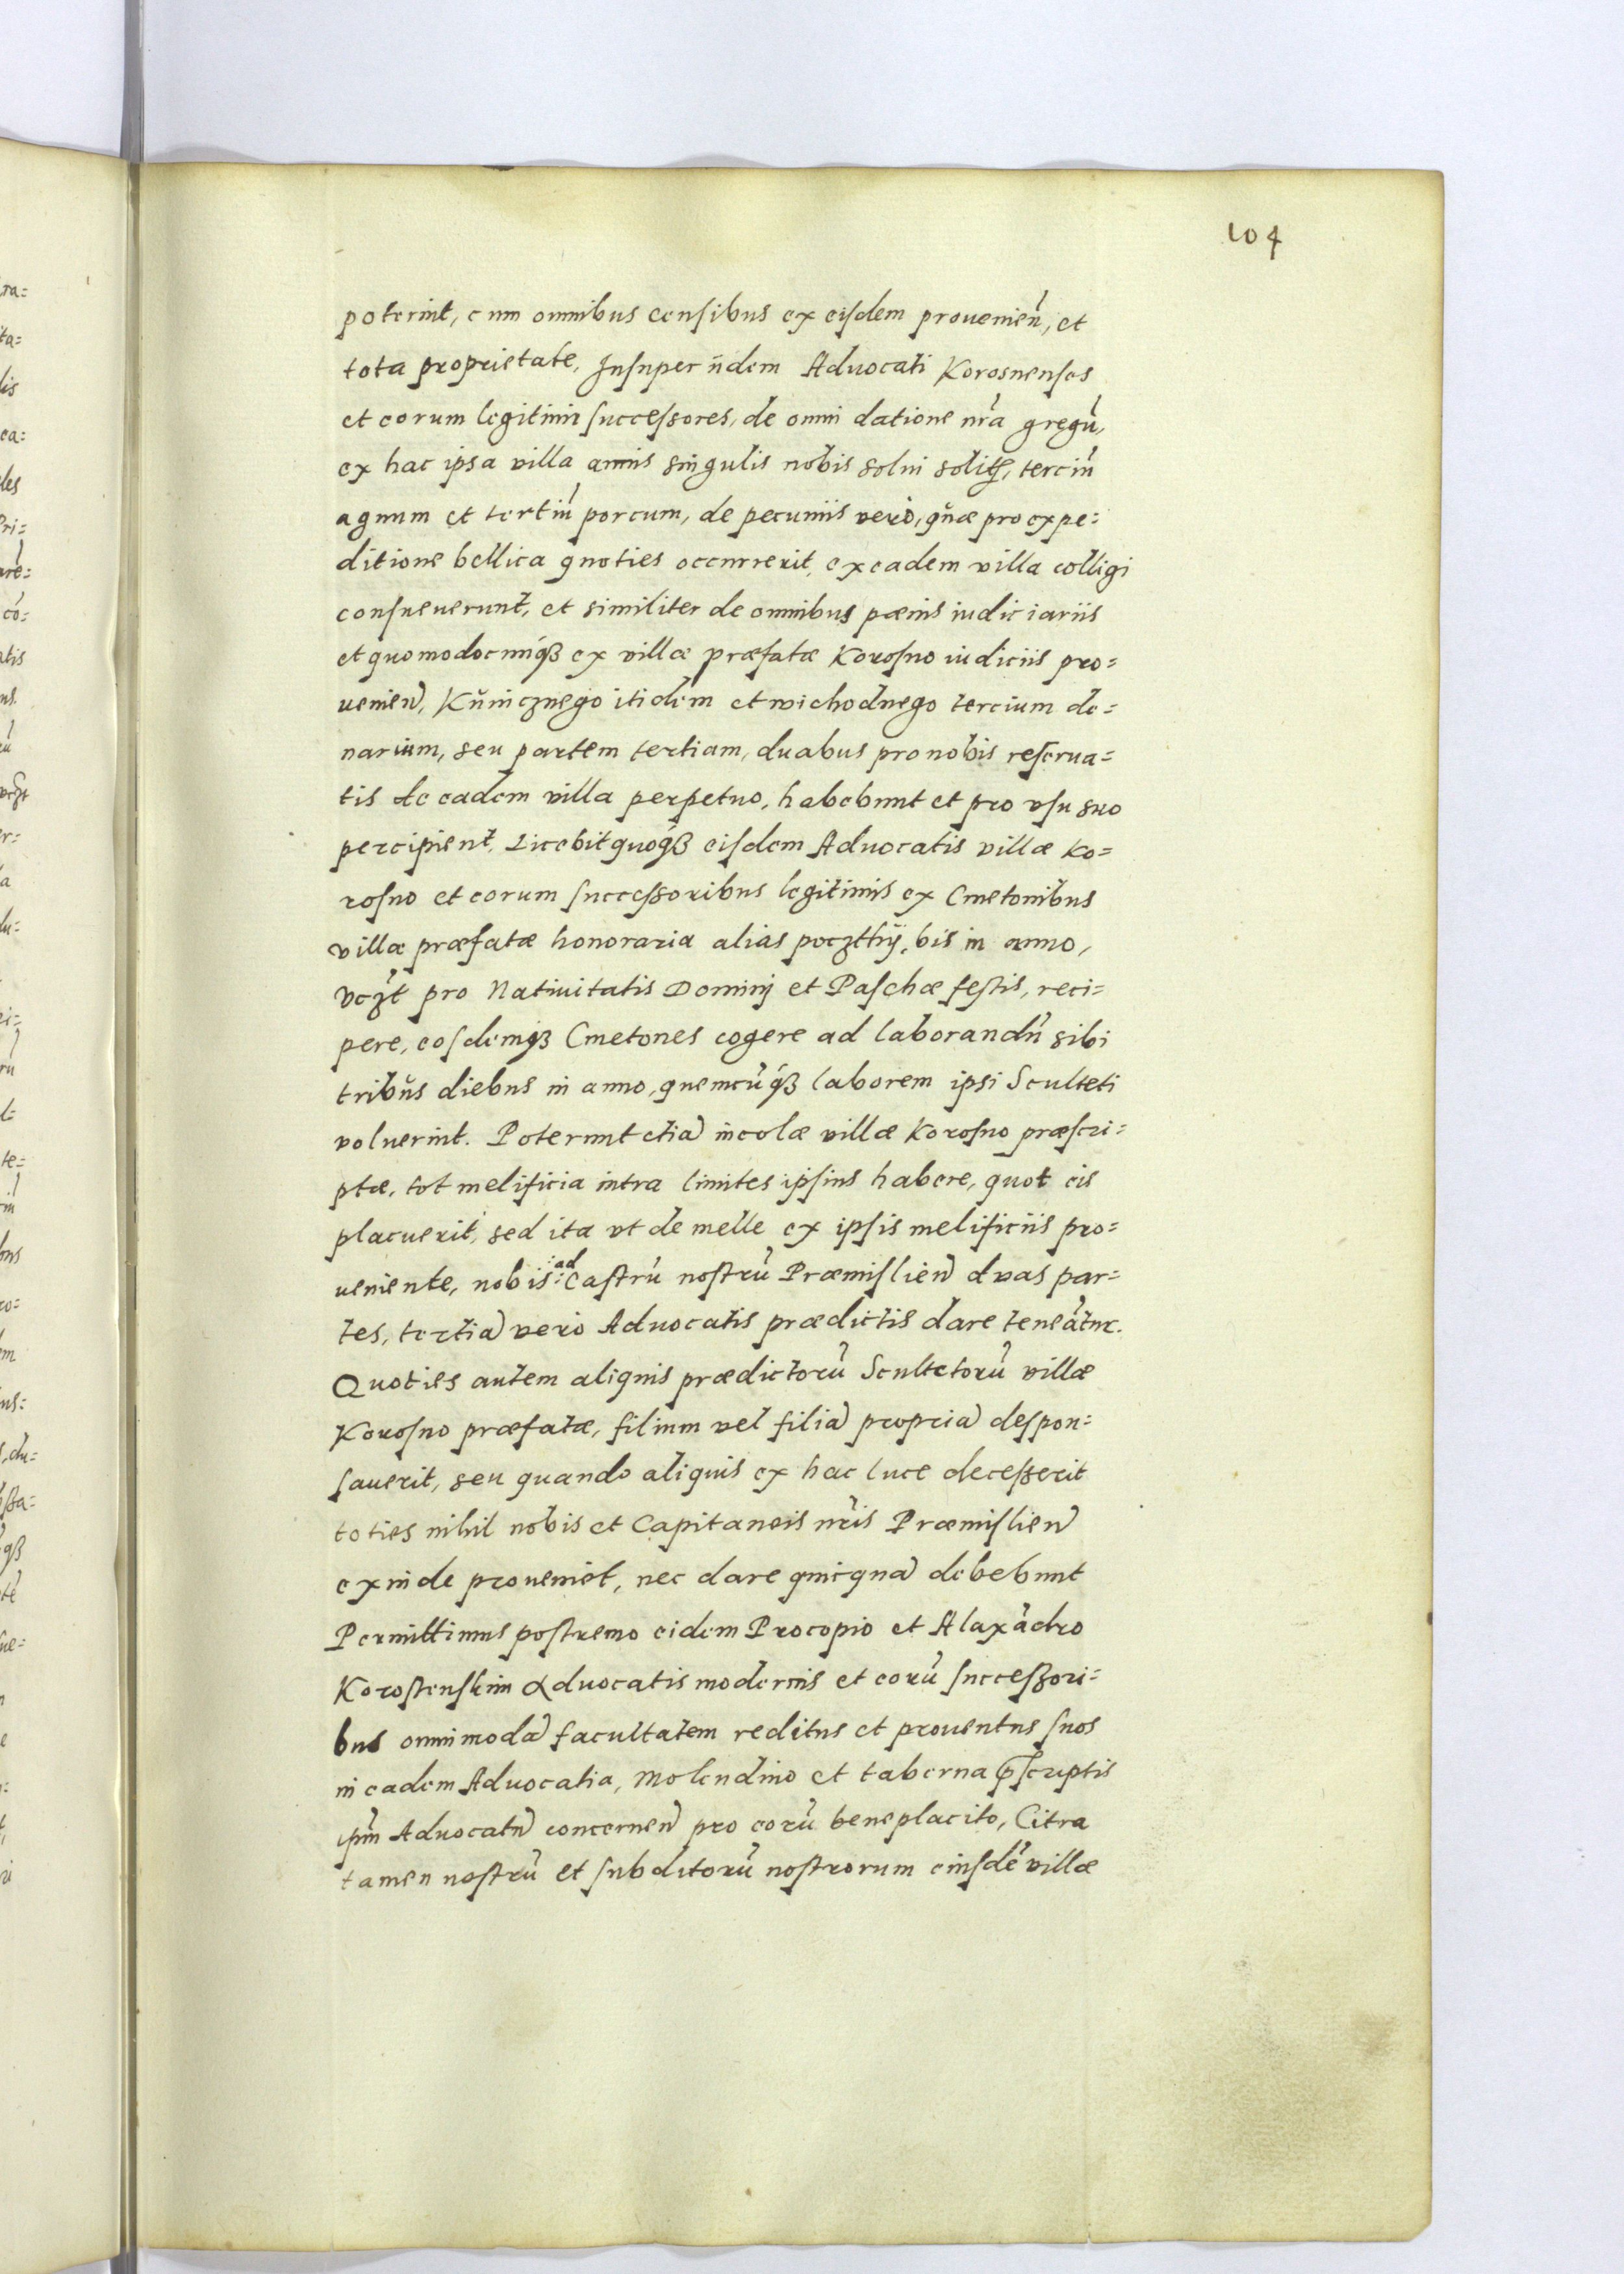 104
poterint, cum omnibus censibus ex eisdem prouenien̄, et
tota proprietate, Insuper iidem Aduocati Korosnenses
et eorum legitimi successores, de omni datione nr̄a gregū,
ex hac ipsa villa annis singulis nobis solui solitꝝ, terciū
agnum et tertiū porcum, de pecuniis verò, quæ pro expe=
ditione bellica quoties occurrerit, ex eadem villa colligi
consueuerunt, et similiter de omnibus pœnis iudiciariis
et quomodocunq́ꝫ ex villæ præfatæ Korosno iudiciis pro=
uenien̄, Kŭnicznego itidem et wichodnego tercium de=
narium, seu partem tertiam, duabus pro nobis reserua=
tis de eadem villa perpetuo, habebunt et pro vsu suo
percipient. Licebit quoq́ꝫ eisdem Aduocatis villæ Ko=
rosno et eorum successoribus legitimis ex Cmetonibus
villæ præfatæ honoraria alias poczthÿ, bis in anno,
vcz̄t pro Natiuitatis Dominj et Paschæ festis, reci=
pere, eosdemqꝫ Cmetones cogere ad laborandū sibi
tribŭs diebus in anno, quemcūq́ꝫ laborem ipsi Sculteti
voluerint. Poterunt etiā incolæ villæ Korosno præscri=
ptæ, tot melificia intra limites ipsius habere, quot eis
placuerit, sed ita vt de melle ex ipsis melificiis pro=
ueniente, nobis :ad: Castrū nostrū Præmislien̄ duas par=
tes, tertiā vero Aduocatis prædictis dare teneātur.
Quoties autem aliquis prædictorū Scultetorū villæ
Korosno præfatæ, filium vel filiā propriā despon=
sauerit, seu quando aliquis ex hac luce decesserit
toties nihil nobis et Capitaneis nr̄is Præmislien̄
exinde proueniet, nec dare quicquā debebunt
Permittimus postremo eidem Procopio et Alaxādro
Korostenskim Aduocatis modernis et eorū successori=
bus omnimodā facultatem reditus et prouentus suos
in eadem Aduocatia, Molendino et taberna p̄scriptis
ip̄m Aduocatū concernen̄ pro eorū beneplacito, Citra
tamen nostrū et subditorū nostrorum eiusdē villæ